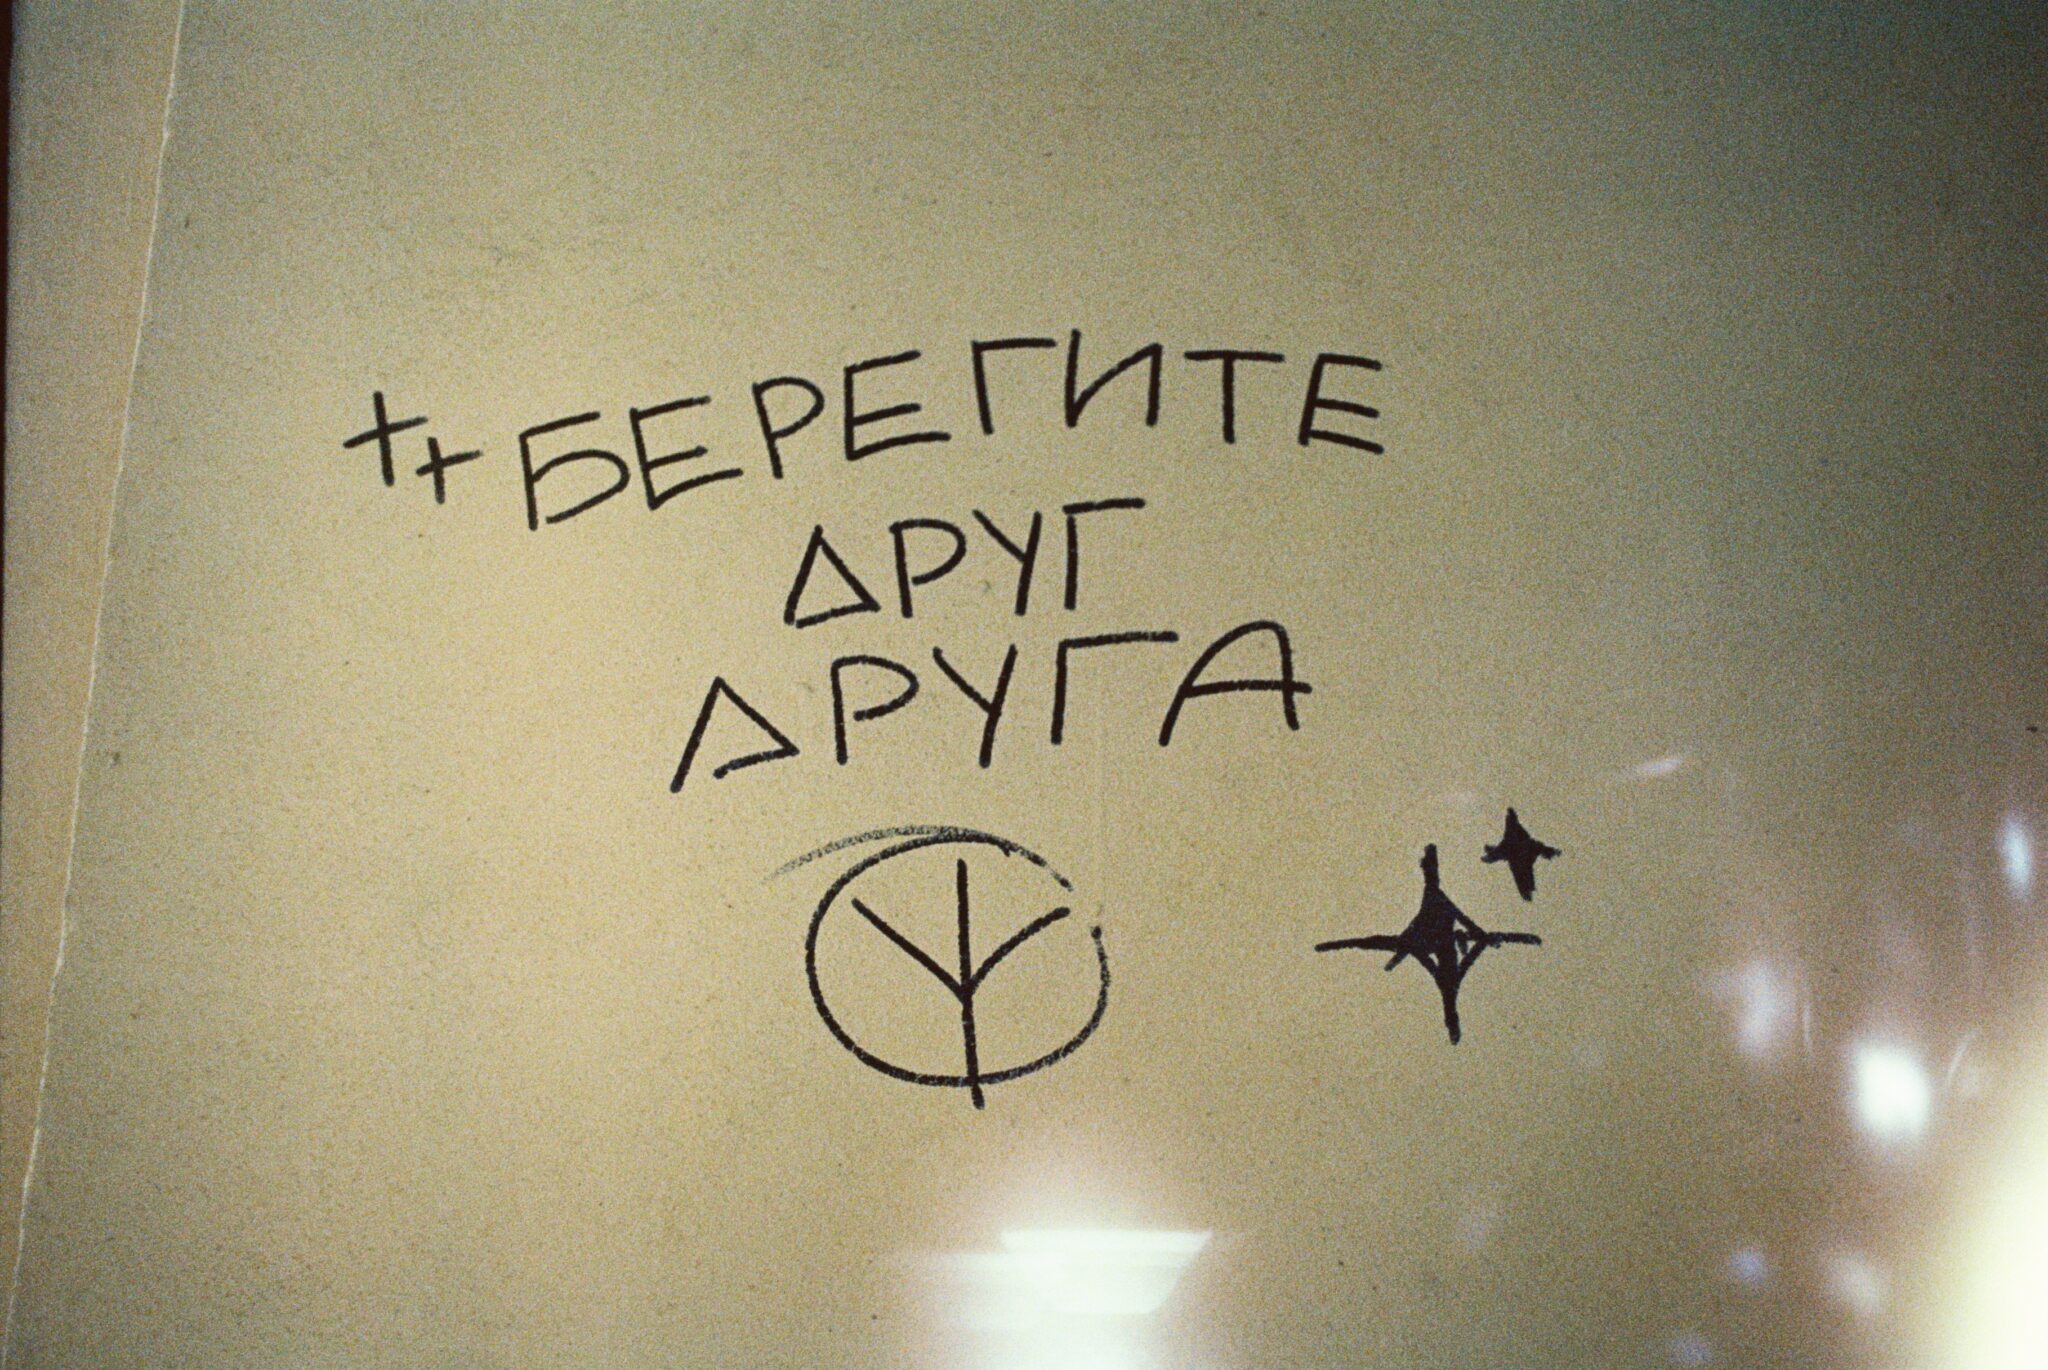 БЕРЕГИТЕ
ДРУГ
ДРУГА